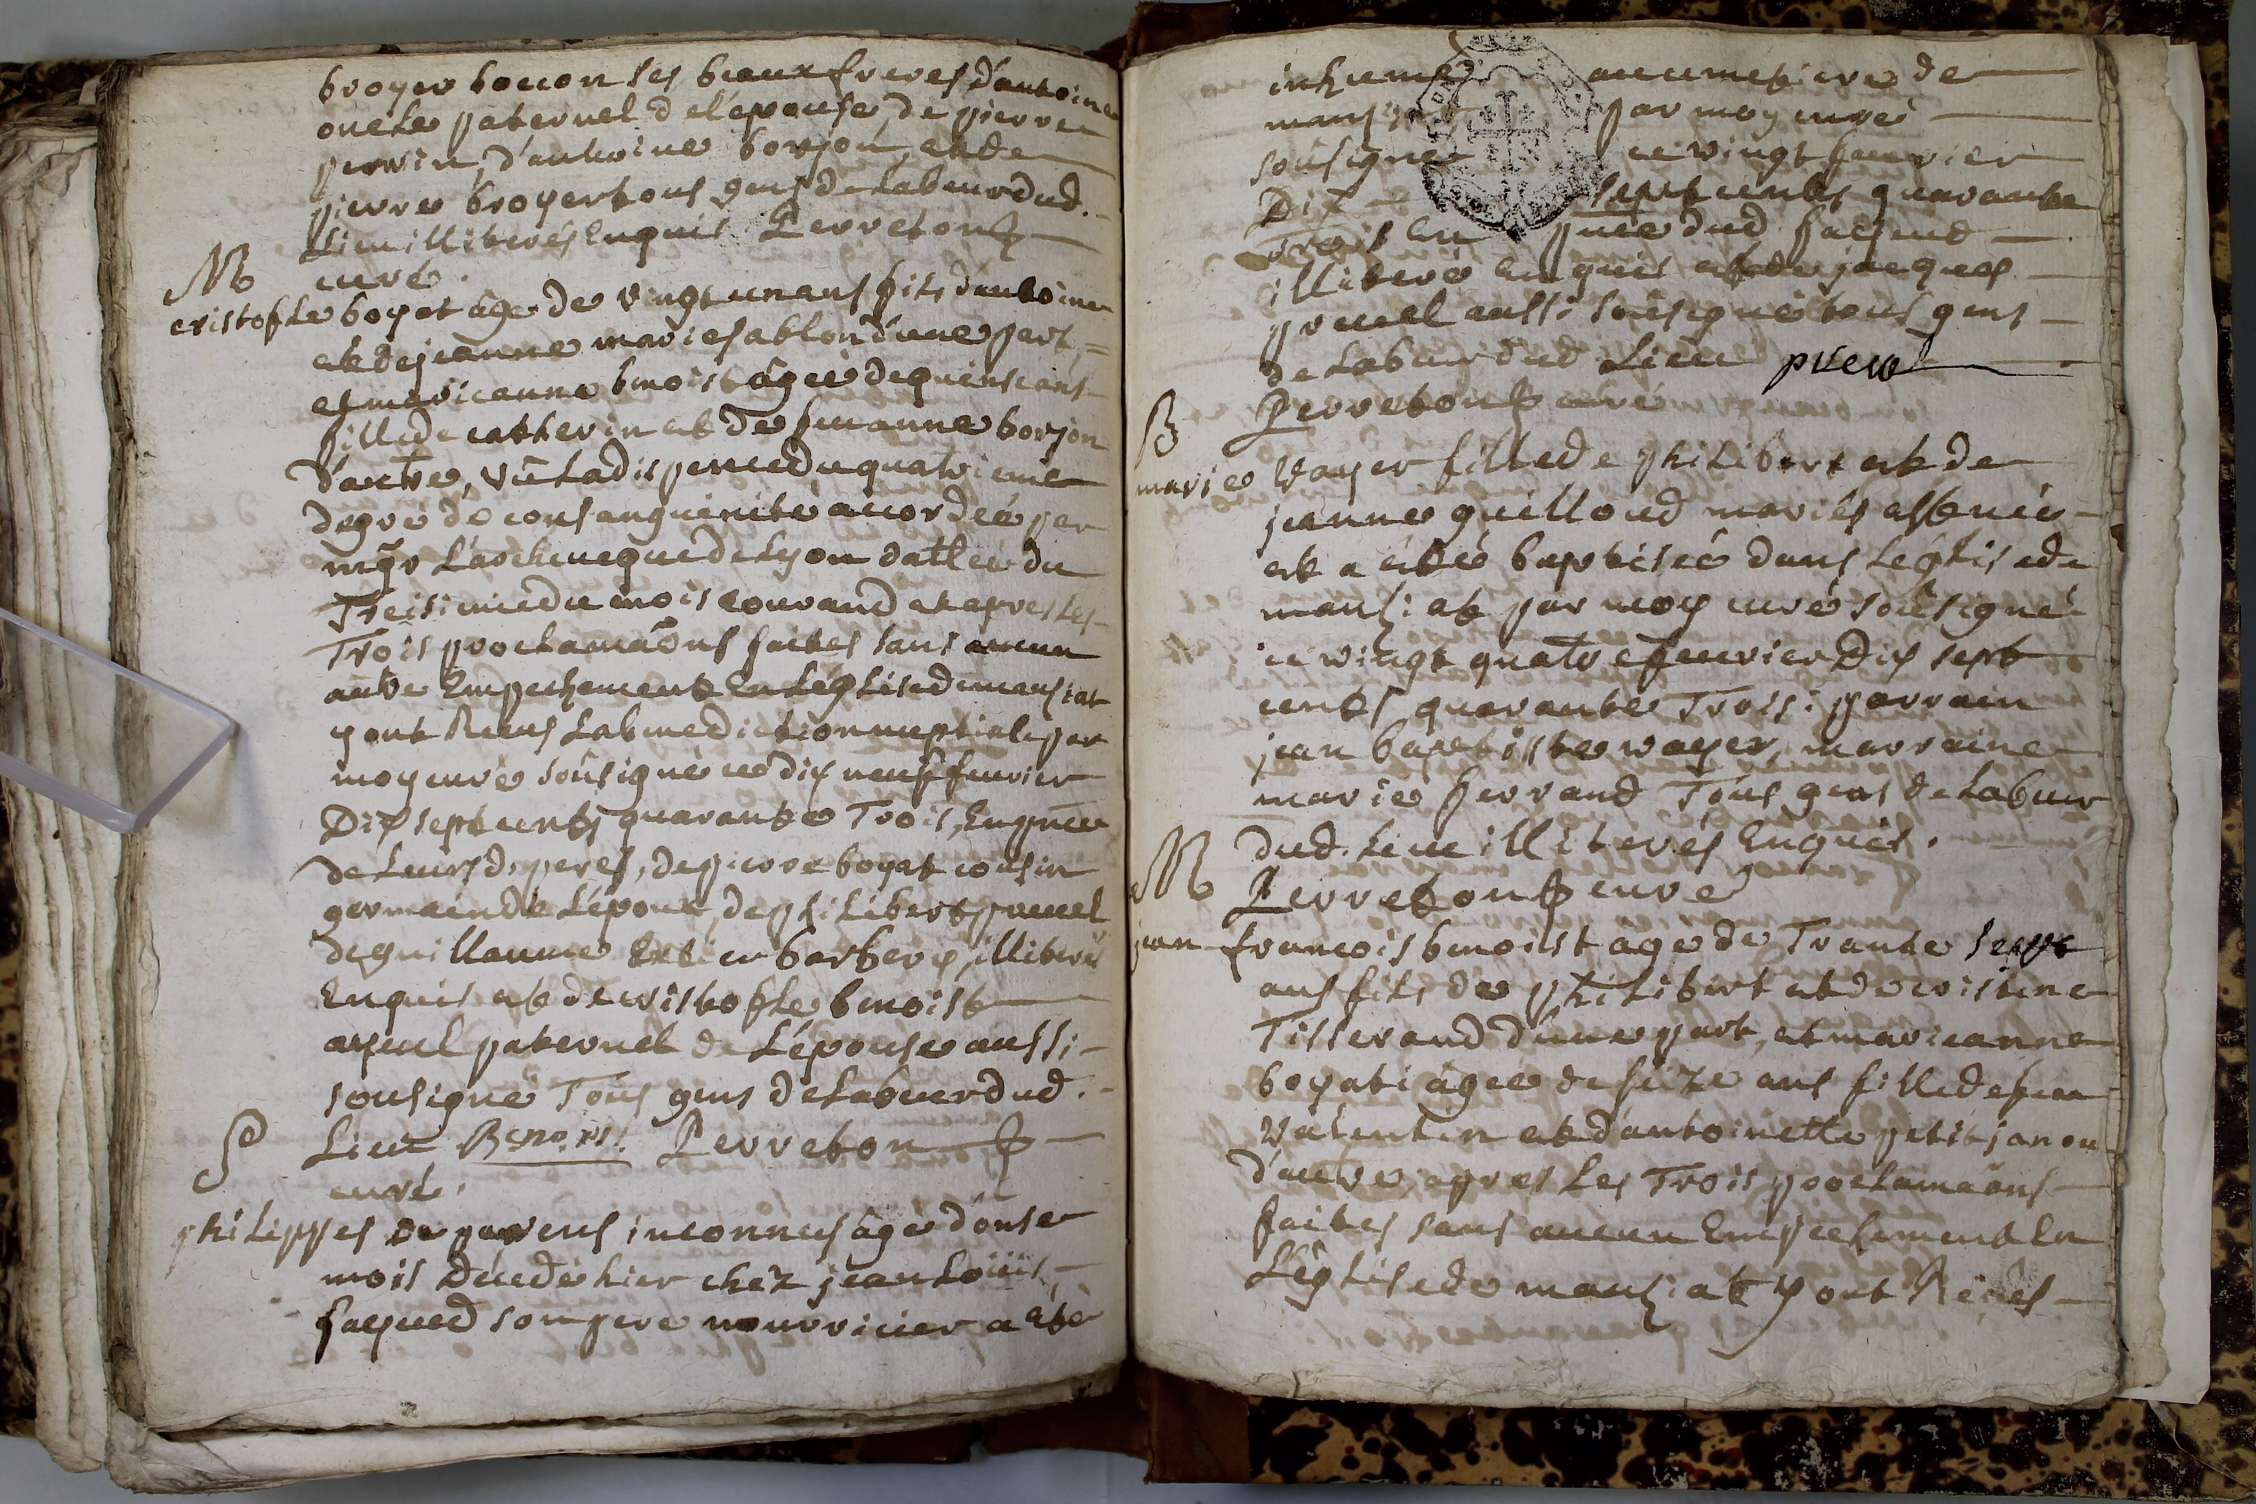 broyer boccon ses beaux freres d'antoine
oncle paternel d el'epouse, de pierre
perrin, d'antoine borjon, et de
pierre broyer tous gens de labeur dud.
Lieu illiterés Enquis Perreton
curé.
M
cristofle boyat âgé de vingt un ans fils d'antoine
et de jeanne marie sablon d'une part,
et marieanne benoist âgée de quinse ans
fille de catherin et de feu anne borjon
d'autre, vû La dispence du quatrieme
degré de consanguinité accordée par
mgr L'archeveque de Lyon dattée du
Treisieme du mois courand et apres Les
Trois proclamaõns faites sans aucun
autre Empechement En Léglise de mansiat
y ont Reçus La benediction nuptiale par
moy curé soûsigné ce dix neuf fevrier
Dix sept cents quarante Trois, En pnce
de Leursd. peres, de pierre boyat cousin
germain de L'epoux, de philibert pruel
de guillaume barbery, illiteré
Enquis et de cristofle benoist
ayeul paternel de L'épouse aussi
sousigné Tous gens de Labeur dud.
Lieu Benois. Perreton
curé.
S
philippes de parens inconnus âgé d'onse
mois décedé hier chez jean Loüis
pacoud son pere nourricier a été
inhumé au cimetiere de
par moy curé
soûsigné ce vingt fevrier
Dix sept cents quarante
Trois En pnce dud pacoud
illiteré Enquis et de jacques
pruel aussi soûsigné tous gens
de Labeur dud Lieu pruel
Perreton curé
B
marie voyer fille de philibert et de
jeanne guilloud mariés est née
et a été baptisée dans Léglise de
mansiat par moy curé soûsigné
ce vingt quatre fevrier Dix sept
cents quarante Trois: parrain
jean baptiste voyer, marraine
marie ferrand Tous gens de Labeur
dud. Lieu illiterés Enquis.
Perreton curé
M
jean francois benoist âgé de Trante sept
ans fils de philibert et de cristine
Tisserand d'une part, et marieanne
boyat âgée de seize ans fille de feu
Valentin et d'antoinette petitjan ou
d'autre, apres Les Trois proclamaõns
faites sans aucun Empechement En
Léglise de mansiat y ont Reçus